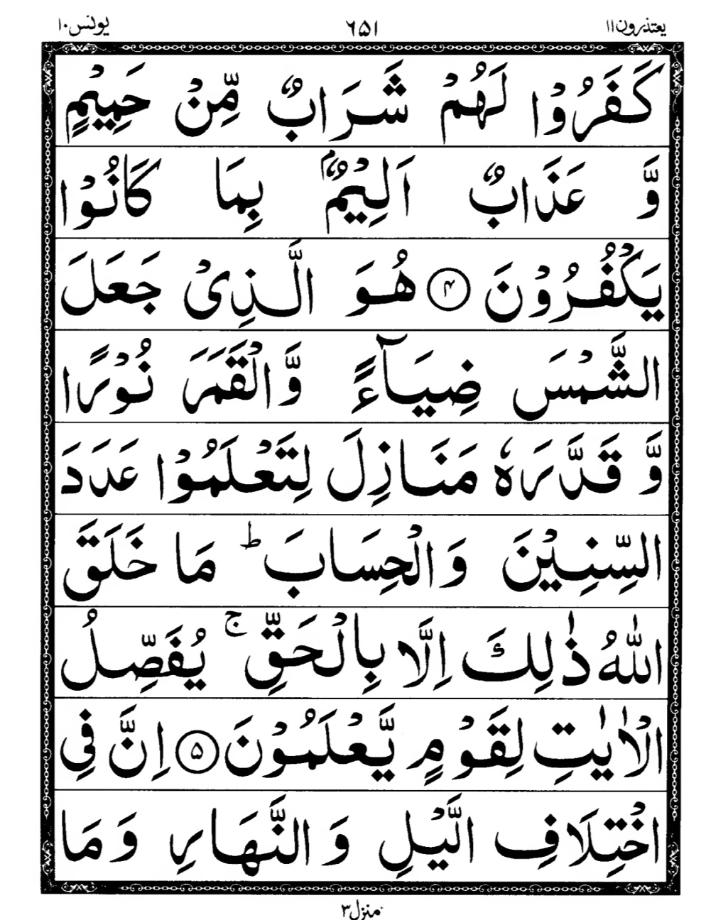 یعتذرون۱۱ ۶۵۱ یونس۱۰
كَفَرُوْا لَهُمْ شَرَابٌ مِّنْ حَمِیْمٍ
وَّ عَذَابٌ اَلِیْمٌۢ بِمَا كَانُوْا
یَكْفُرُوْنَ ۴ هُوَ الَّذِیْ جَعَلَ
الشَّمْسَ ضِیَآءً وَّالْقَمَرَ نُوْرًا
وَّ قَدَّرَهٗ مَنَازِلَ لِتَعْلَمُوْا عَدَدَ
السِّنِیْنَ وَالْحِسَابَ ؕ مَا خَلَقَ
اللّٰهُ ذٰلِكَ اِلَّا بِالْحَقِّ ۚ یُفَصِّلُ
الْاٰیٰتِ لِقَوْمٍ یَّعْلَمُوْنَ ۵ اِنَّ فِی
اخْتِلَافِ الَّیْلِ وَ النَّهَارِ وَ مَا
منزل۳